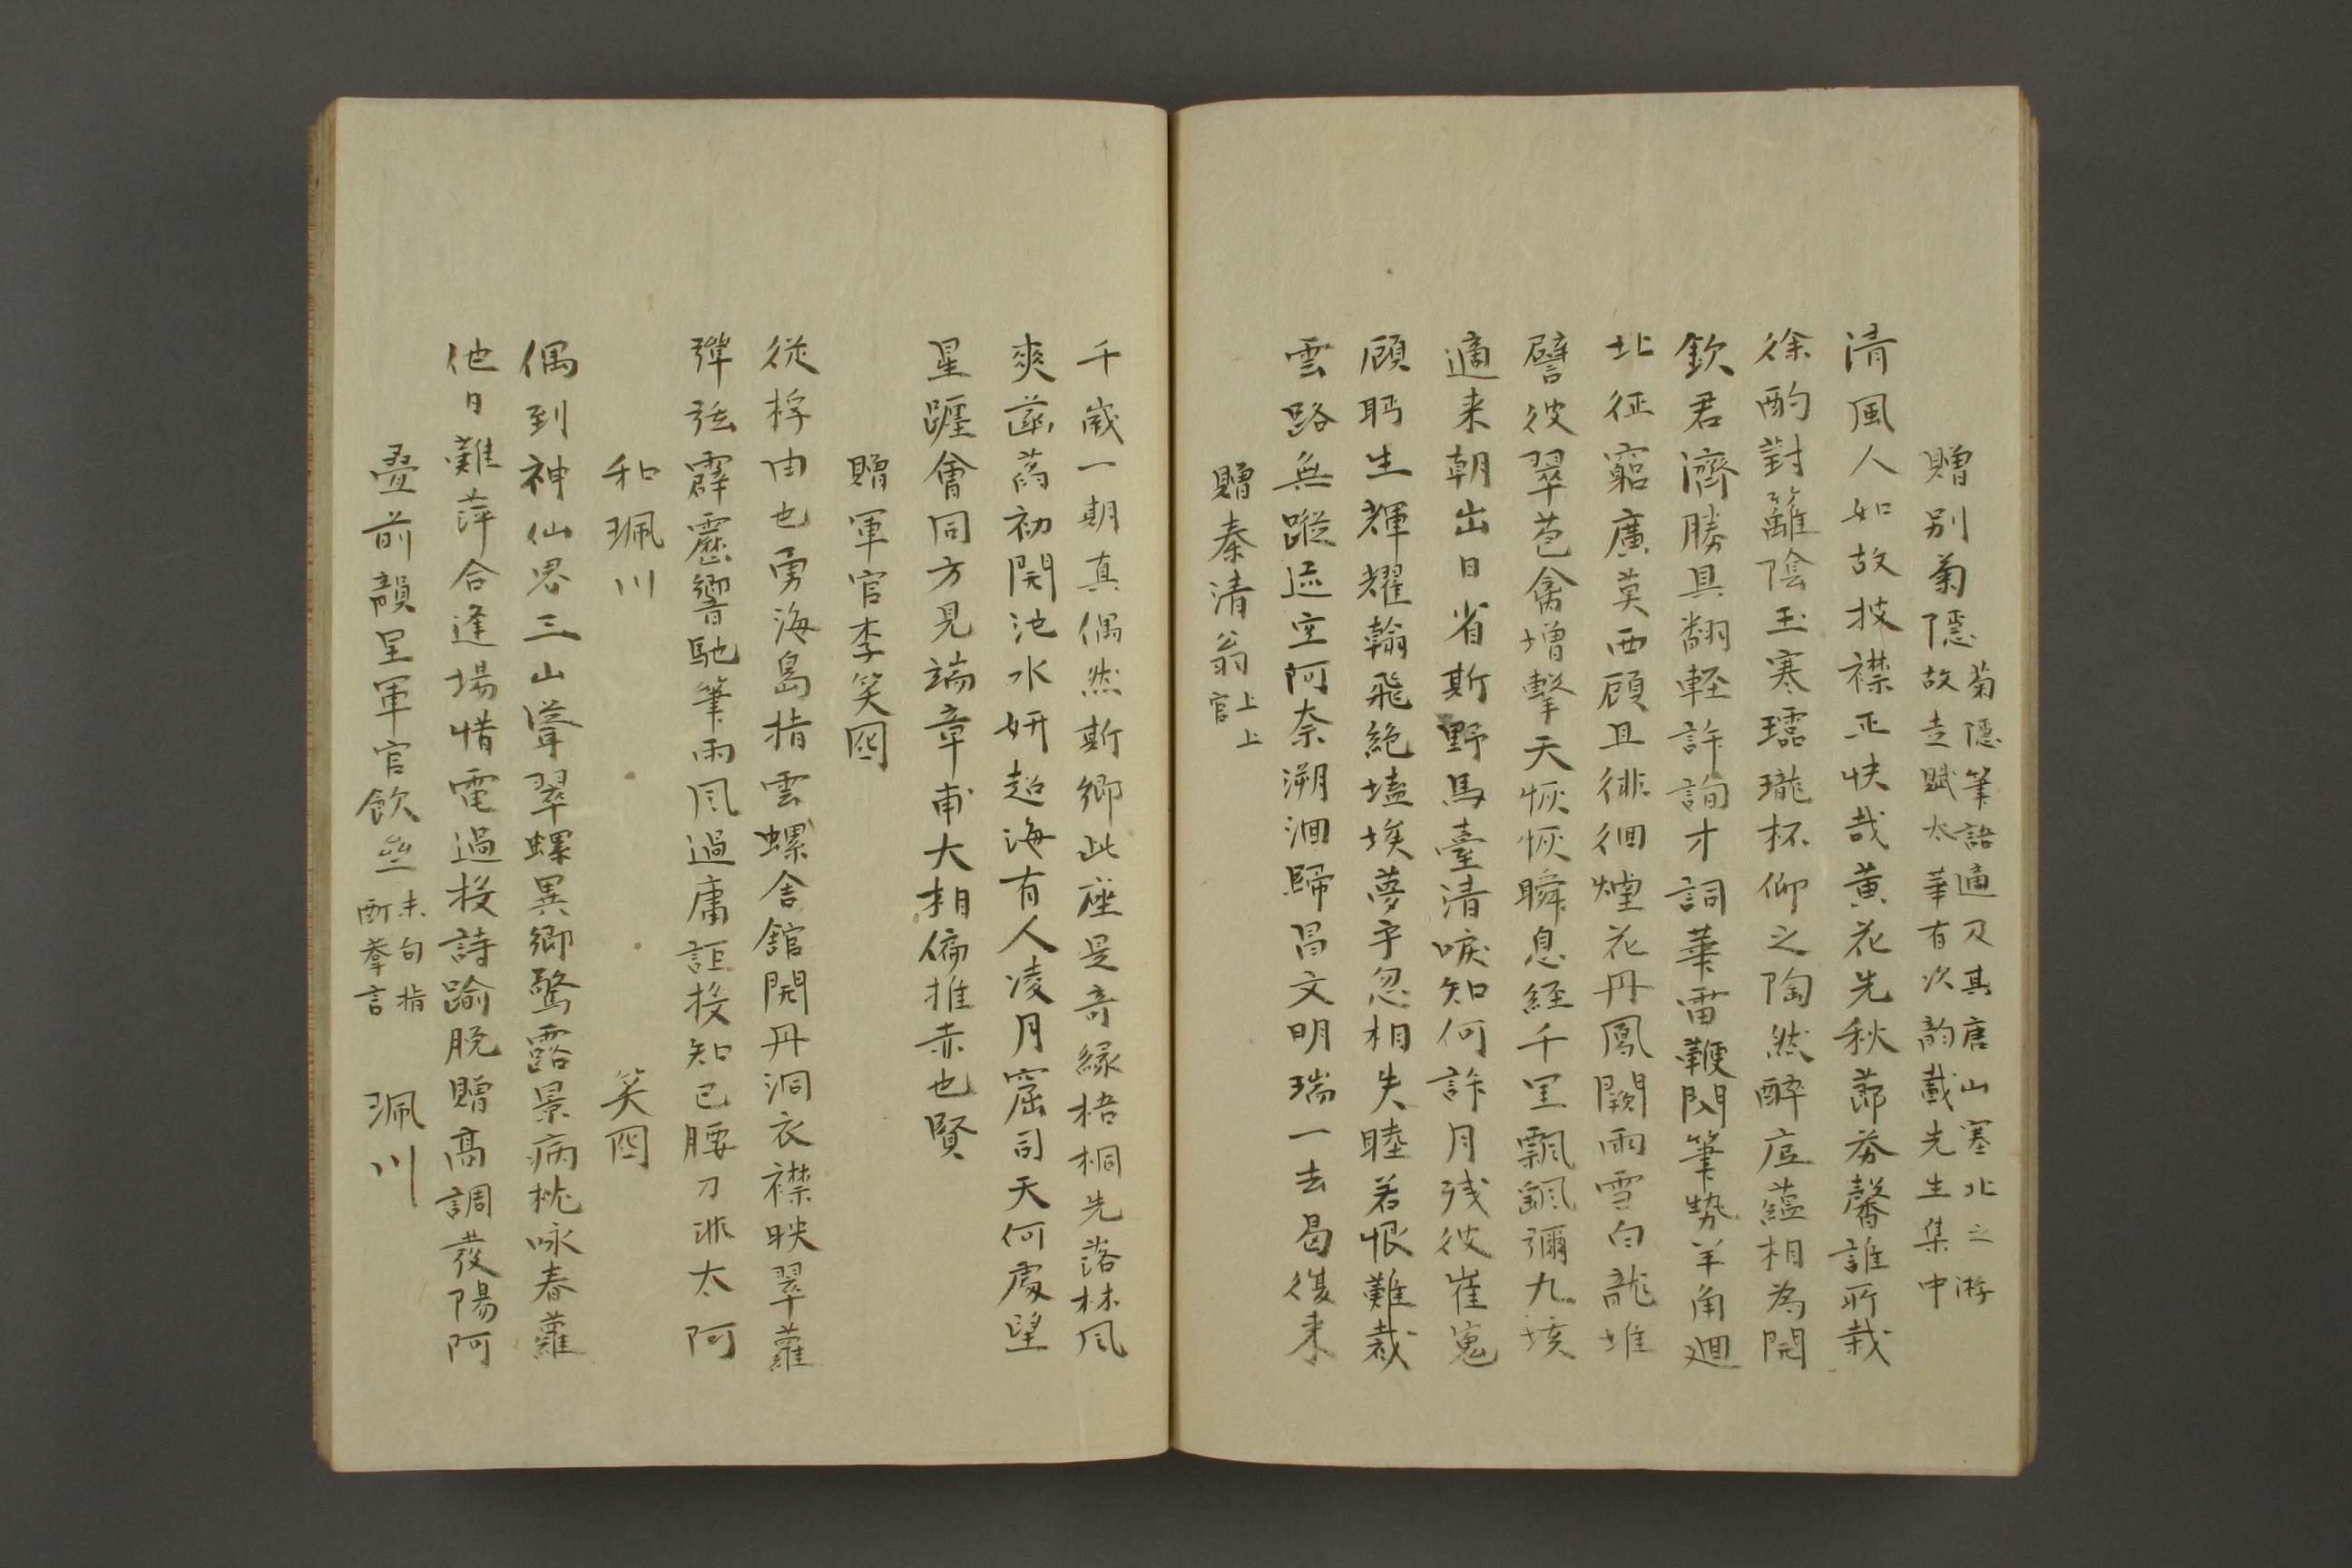 贈别菊隱 菊隱筆語適及其唐山塞北之游
故走賦太華有次韵戴先生集中
清風人如故披襟正快哉黄花先秋節芬馨誰所栽
徐酌對籬陰玉寒瓏杯仰之陶然醉底蘊相為開
欽君濟勝具翻輕許詢才詞華雷鞭閃筆勢羊角廻
北征窮廣莫西顧且徘徊煙花丹鳳闕雨雪白龍堆
譬彼翠苞禽增擊天恢恢瞬息經千里飄颻彌九垓
適来朝出日省斯野馬臺清唳知何許月残彼崔嵬
顧眄生輝耀翰飛絶壒埃夢乎忽相失睦若恨難裁
雲路無蹤迹空阿奈溯洄歸昌文明瑞一去曷復来
贈秦清翁 上上
官
千歳一期真偶然斯鄉此座是竒縁梧桐先落林風
爽菡萏初開池水妍超海有人凌月窟司天何處望
星躔會同方見端章甫大相偏推赤也賢
贈軍官李笑囮
從桴由也勇海島指雲螺舎館開丹洞衣襟映翠蘿
弾弦霹靂響馳筆雨風過庸詎投知已腰刀非太阿
和珮川 笑囮
偶到神仙界三山聳翠螺異鄉驚露景病枕咏春蘿
他日難萍合逢場惜電過投詩踰脱贈高調發陽阿
疊前韻呈軍官飲並 末句指
酌羣言 珮川